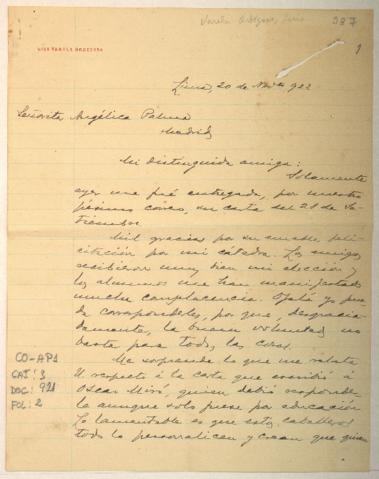 Varela Orbegoso, Luis 387
LUIS VARELA ORBEGOSO
1
Lima, 20 de Nov. 922
Señorita Angélica Palma
Madrid
Mi distinguida amiga:
Solamente
ayer me fué entregada, por nuestro
pésimo correo, su carta del 28 de Se-
tiembre.
Mil gracias por su amable feli-
citación por mi cátedra. Los amigos
recibieron muy bien mi elección y
los alumnos me han manifestado
mucha complacencia. Ojalá yo pue-
da corresponderles, por que, desgracia-
damente, la buena voluntad no
basta para todas las cosas.
Me sorprende lo que me relata
U. respecto á la carta que escribió á
Oscar Miró, quien debió responder-
le aunque solo fuese por educación
Lo lamentable es que estos caballeros
todo lo personalicen y crean que quien
CO-AP1
CAJ: 3
DOC: 921
FOL: 2